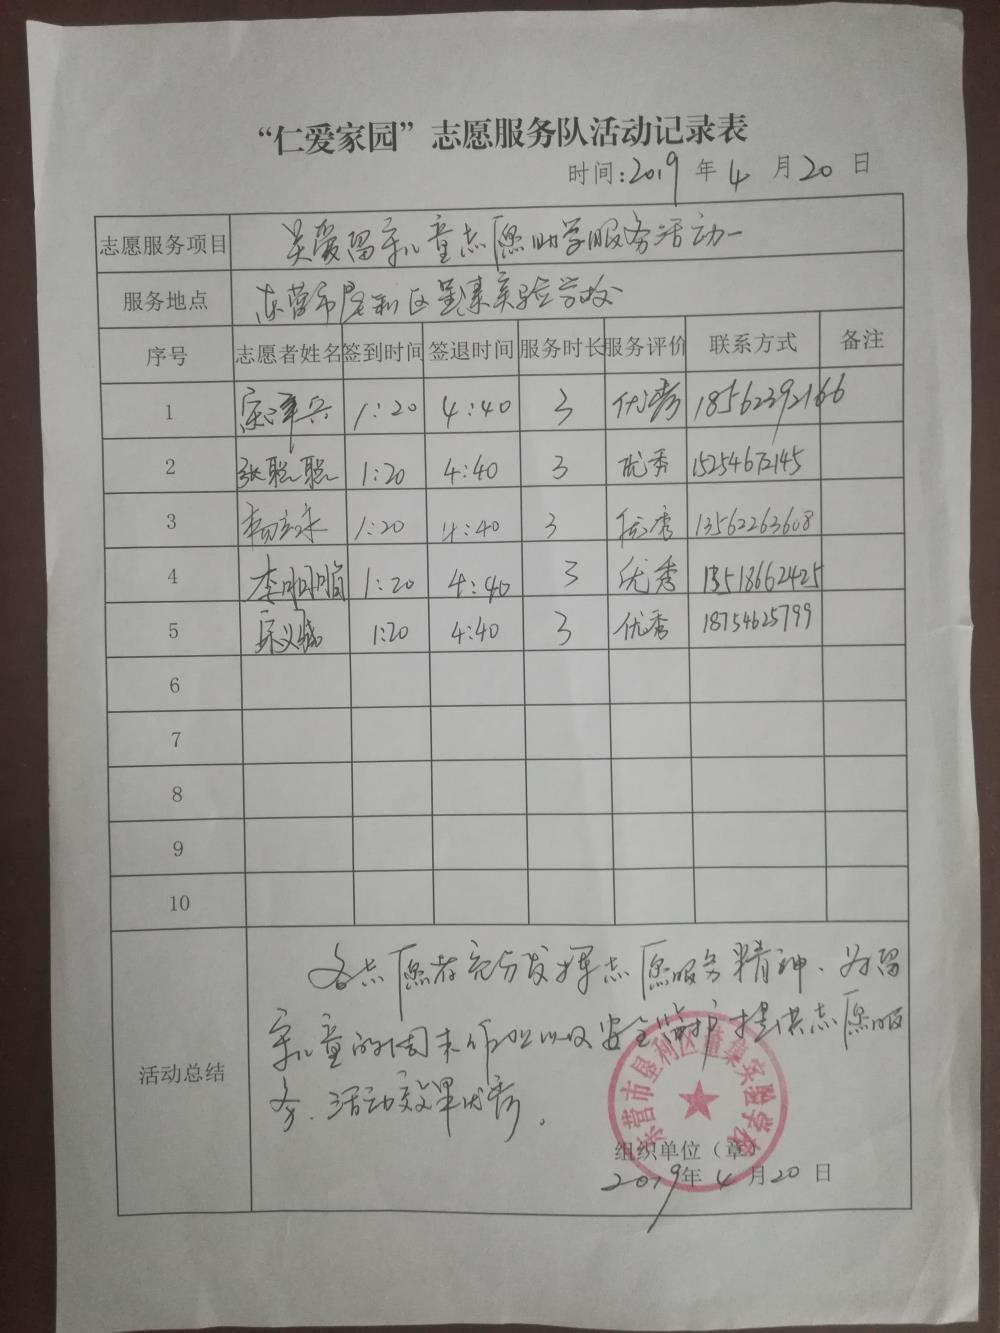 “仁爱家园”志愿服务队活动记录表
时间:2019年4月20日
志愿服务项目 关爱留守儿童志愿助学服务活动
服务地点 东营市垦利区董集实验学校
序号 志愿者姓名 签到时间 签退时间 服务时长 服务评价 联系方式 备注
1 1:20 4:40 3 优秀 18562392166
2 张聪聪 1:20 4:40 3 优秀 15254672145
3 1:20 4:40 3 优秀 13562263608
4 李 1:20 4:40 3 优秀 13518662425
5 1:20 4:40 3 优秀 18754625799
6
7
8
9
10
活动总结
各志愿者充分发挥志愿服务精神、为留
守儿童的周末作业以及安全监护提供志愿服
务、活动效果优秀。
东营市垦利区董集实验学校
组织单位（章）
2019年4月20日